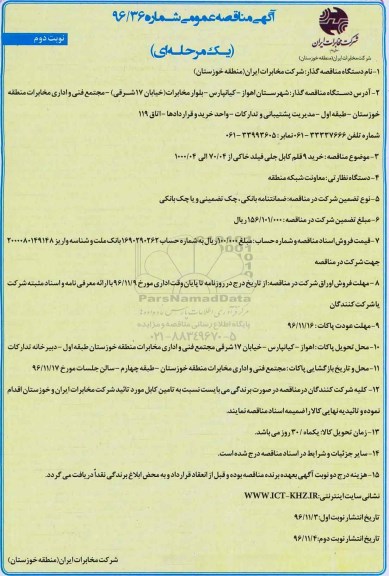 آگهی مناقصه عمومی شماره ۹۶/۳۶
نوبت دوم
(یک مرحله‌ای)
شرکت مخابرات ایران
شرکت مخابرات ایران (منطقه خوزستان)
۱-نام دستگاه مناقصه گذار: شرکت مخابرات ایران(منطقه خوزستان)
۲- آدرس دستگاه مناقصه گذار: شهرستان اهواز -کیانپارس -بلوار مخابرات(خیابان ۱۷ شرقی) -مجتمع فنی و اداری مخابرات منطقه
خوزستان -طبقه اول - مدیریت پشتیبانی و تدارکات -واحد خرید و قراردادها -اتاق ۱۱۹
شماره تلفن ۳۳۳۳۷۶۶۶-۰۶۱ نمابر: ۳۳۹۹۳۶۰۵-۰۶۱
۳- موضوع مناقصه: خرید ۹ قلم کابل جلی فیلد خاکی از ۷۰/۰۴ الی ۱۰۰۰/۰۴
۴-دستگاه نظارتی: معاونت شبکه منطقه
۵-نوع تضمین شرکت در مناقصه: ضمانتنامه بانکی، چک تضمینی و یا چک بانکی
۶-مبلغ تضمین شرکت در مناقصه: ۱۵۶/۱۰۱/۰۰۰ ریال
۷-قیمت فروش اسناد مناقصه و شماره حساب: مبلغ ۱۰۰/۰۰۰ ریال به شماره حساب ۱۶۹۰۲۹۰۲۶۲ بانک ملت و شناسه واریز ۲۰۰۰۰۸۰۱۴۹۱۴۸
جهت شرکت در مناقصه
۸-مهلت فروش اوراق شرکت در مناقصه: از تاریخ درج در روزنامه تا پایان وقت اداری مورخ ۹۶/۱۱/۹ با ارائه معرفی نامه و اسناد مثبته شرکت
یا شرکت کنندگان
۹-مهلت عودت پاکات: ۹۶/۱۱/۱۶
۱۰-محل تحویل پاکات: اهواز -کیانپارس -خیابان ۱۷ شرقی مجتمع فنی و اداری مخابرات منطقه خوزستان طبقه اول -دبیرخانه تدارکات
۱۱-محل و تاریخ بازگشایی پاکات: مجتمع فنی و اداری مخابرات منطقه خوزستان -طبقه چهارم -سالن جلسات مورخ ۹۶/۱۱/۱۷
۱۲-کلیه شرکت کنندگان در مناقصه در صورت برندگی می بایست نسبت به تامین کابل مورد تائید شرکت مخابرات ایران و خوزستان اقدام
نموده و تائیدیه نهایی کالا را ضمیمه اسناد مناقصه نمایند.
۱۳-زمان تحویل کالا: یکماه / ۳۰ روز می باشد.
۱۴-سایر جزئیات و شرایط در اسناد مناقصه درج شده است.
۱۵-هزینه درج دو نوبت آگهی بعهده برنده مناقصه بوده و قبل از انعقاد قرارداد و به محض ابلاغ برندگی نقداً دریافت می گردد.
نشانی سایت اینترنتی: WWW.ICT-KHZ.IR
تاریخ انتشار نوبت اول: ۹۶/۱۱/۳
تاریخ انتشار نوبت دوم: ۹۶/۱۱/۴
شرکت مخابرات ایران(منطقه خوزستان)
ParsNamadData
پایگاه اطلاع رسانی مناقصه و مزایده
۰۲۱-۸۸۳۴۹۶۷۰-۵